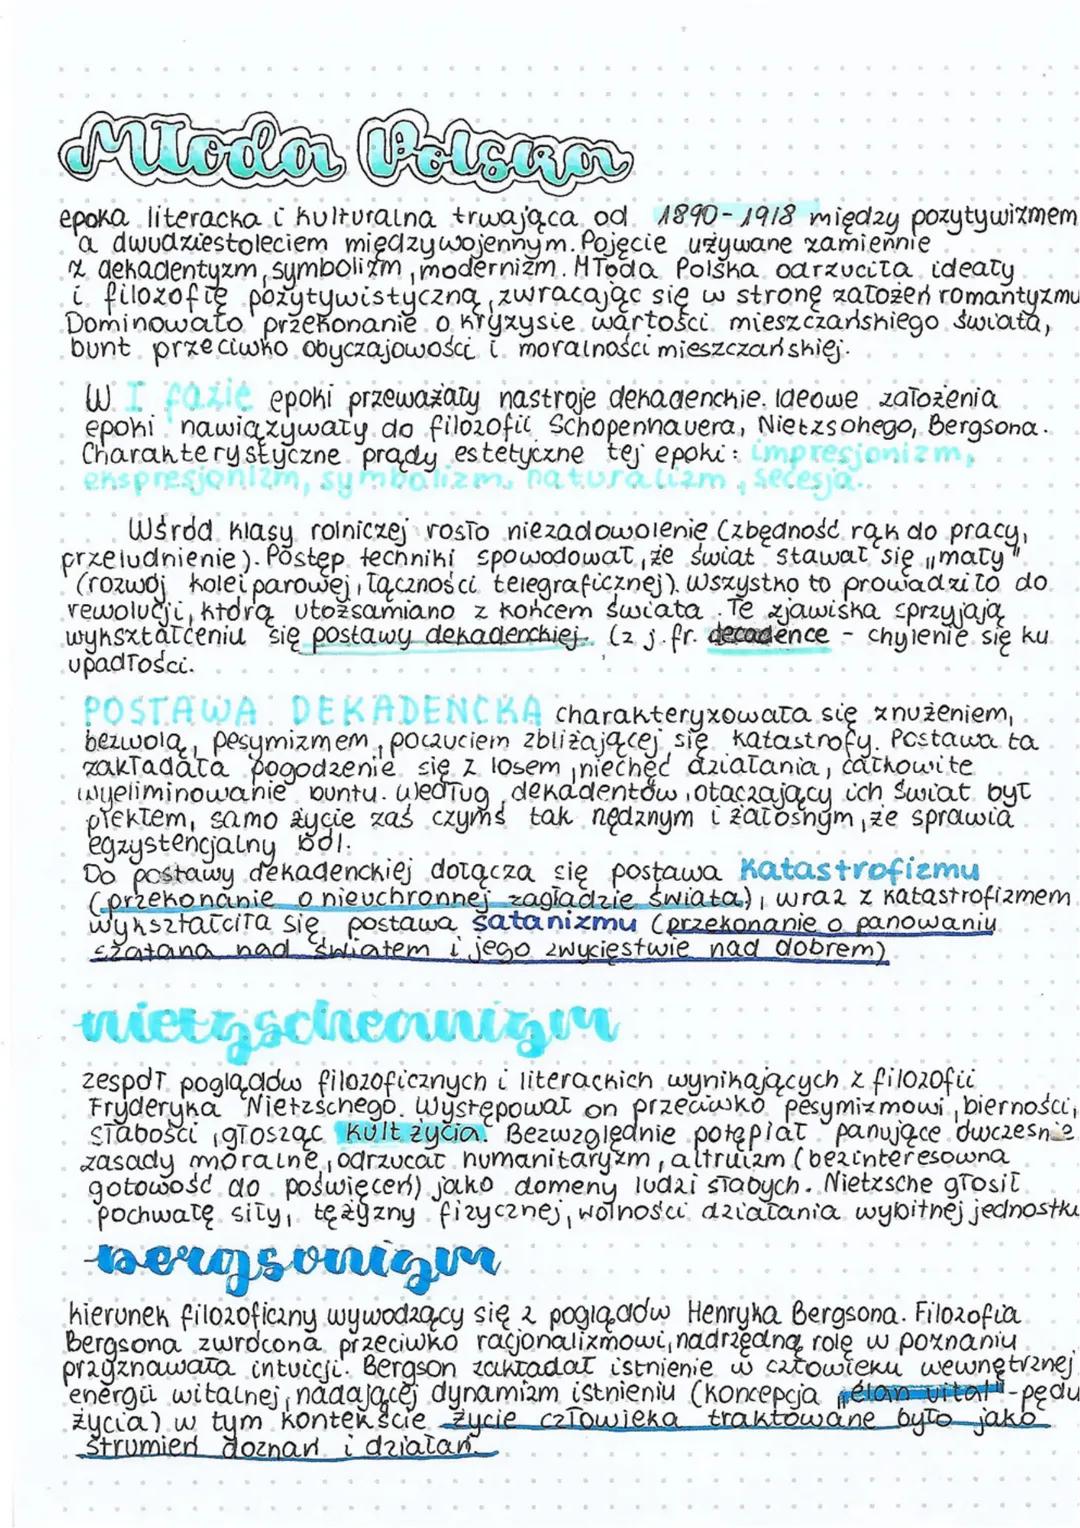 Młoda Polska
epoka literacka i kulturalna trwająca od 1890-1918 między pozytywizmem
a dwudziestoleciem międzywojennym. Pojęcie używane zamiennie
z dekadentyzm, symbolizm, modernizm. Młoda Polska odrzuciła ideały
i filozofię pozytywistyczną, zwracając się w stronę założeń romantyzmu
Dominowało przekonanie o kryzysie wartości mieszczańskiego świata,
bunt przeciwko obyczajowości i moralności mieszczańskiej.
W I fazie epoki przeważały nastroje dekadenckie. Ideowe założenia
epoki nawiązywały do filozofii Schopenhauera, Nietzschego, Bergsona.
Charakterystyczne prądy estetyczne tej epoki: impresjonizm,
ekspresjonizm, symbolizm, naturalizm, secesja.
Wśród klasy rolniczej rosło niezadowolenie (zbędność rąk do pracy,
przeludnienie). Postęp techniki spowodował, że świat stawał się „mały"
(rozwój kolei parowej, łączności telegraficznej). Wszystko to prowadziło do
rewolucji, którą utożsamiano z końcem świata. Te zjawiska sprzyjają
wykształceniu się postawy dekadenckiej. (z j. fr. decadence - chylenie się ku
upadłości.
POSTAWA DEKADENCKA charakteryzowała się znużeniem,
bezwolą, pesymizmem, poczuciem zbliżającej się katastrofy. Postawa ta
zakładała pogodzenie się z losem, niechęć działania, całkowite
wyeliminowanie buntu. Według dekadentów, otaczający ich świat był
piekłem, samo życie zaś czymś tak nędznym i żałosnym, że sprawia
egzystencjalny ból.
Do postawy dekadenckiej dołącza się postawa katastrofizmu
(przekonanie o nieuchronnej zagładzie świata), wraz z katastrofizmem
wykształciła się postawa satanizmu (przekonanie o panowaniu
szatana nad światem i jego zwycięstwie nad dobrem)
nietzscheanizm
zespół poglądów filozoficznych i literackich wynikających z filozofii
Fryderyka Nietzschego. Występował on przeciwko pesymizmowi, bierności,
słabości, głosząc kult życia. Bezwzględnie potępiał panujące ówcześnie
zasady moralne, odrzucał humanitaryzm, altruizm (bezinteresowna
gotowość do poświęceń) jako domeny ludzi słabych. Nietzsche głosił
pochwałę siły, tężyzny fizycznej, wolności działania wybitnej jednostki
bergsonizm
kierunek filozoficzny wywodzący się z poglądów Henryka Bergsona. Filozofia
Bergsona zwrócona przeciwko racjonalizmowi, nadrzędną rolę w poznaniu
przyznawała intuicji. Bergson zakładał istnienie w człowieku wewnętrznej
energii witalnej, nadającej dynamizm istnieniu (koncepcja „élan vital" - pędu
życia) w tym kontekście życie człowieka traktowane było jako
strumień doznań i działań.